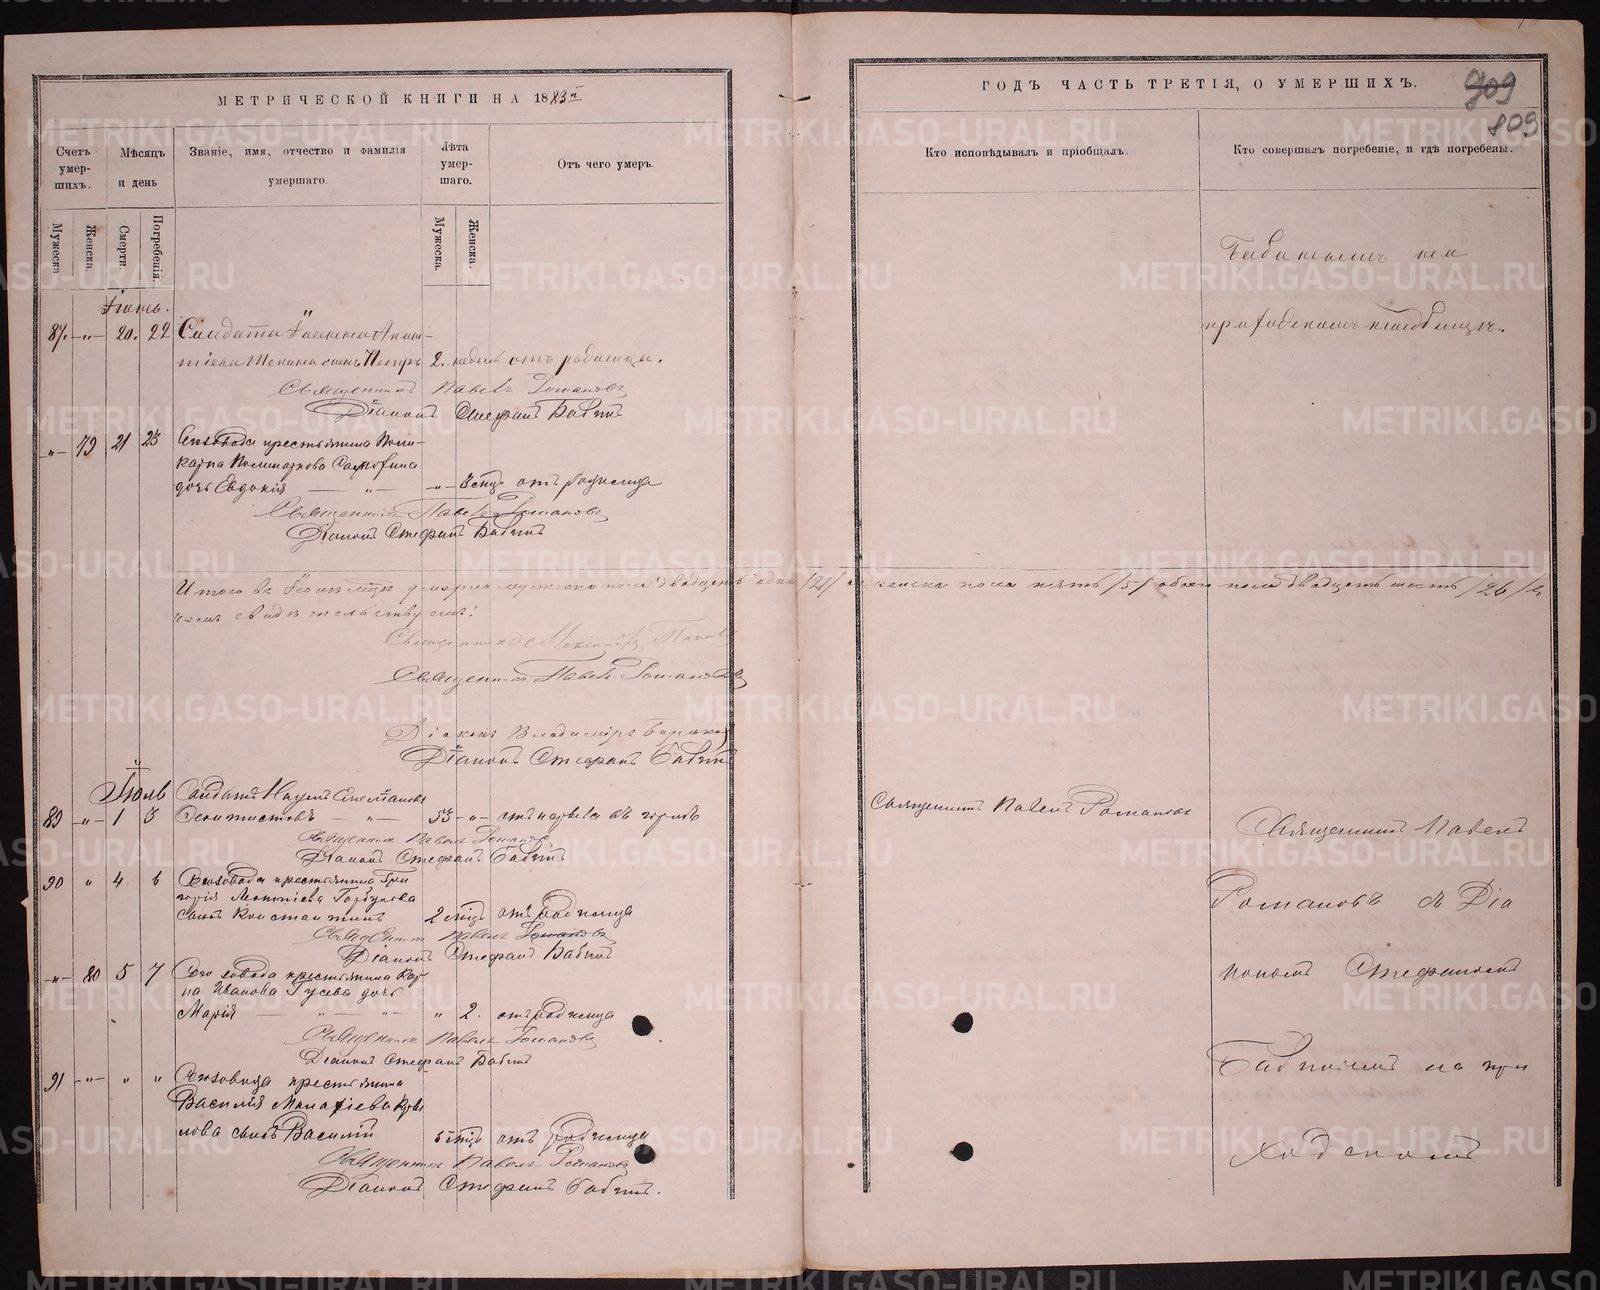 МЕТРИЧЕСКОЙ КНИГИ НА 1883й
Счетъ умер-шихъ.
Мѣсяцъ и день
Званіе, имя, отчество и фамилія умершаго.
Лѣта умер-шаго.
Отъ чего умеръ.
Мужеска
Женска.
Смерти.
Погребенія.
Мужеска.
Женска.
Іюнь.
87. -„- 20. 22 Солдата
сынъ Петръ 2. недель отъ родимца.
Священникъ Павелъ Романовъ
Діаконъ Стефанъ Бабинъ
-„- 79 21 23 крестьянина
дочь Евдокія -„- отъ родимца
Священникъ Павелъ Романовъ
Діаконъ Стефанъ Бабинъ
Итого въ Іюнѣ мцѣ умерло мужеска пола двадцать одинъ /21/ женска пола пять /5/ обоего пола двадцать шесть /26/
чемъ свидѣтельствуемъ:
Священникъ Александръ Поповъ
Священникъ Павелъ Романовъ
Діаконъ Владиміръ
Діаконъ Стефанъ Бабинъ
Іюль Солдатъ Наумъ Степановъ
89 -„- 1 3 -„- 53 -„- отъ
Священникъ Павелъ Романовъ
Діаконъ Стефанъ Бабинъ
90 „ 4 6 крестьянина Гри
горія Леонтіева Горбунова
сынъ Константинъ 2 мцъ отъ родимца
Священникъ Павелъ Романовъ
Діаконъ Стефанъ Бабинъ
-„- 80 5 7 крестьянина Кар
па Иванова Гусева дочь
Марія „ 2. отъ родимца
Священникъ Павелъ Романовъ
Діаконъ Стефанъ Бабинъ
91 -„- „ „ крестьянина
Василія Малафіева
сынъ Василій отъ родимца
Священникъ Павелъ Романовъ
Діаконъ Стефанъ Бабинъ.
ГОДЪ ЧАСТЬ ТРЕТІЯ, О УМЕРШИХЪ.
909
809
Кто исповѣдывалъ и пріобщалъ.
Кто совершалъ погребеніе, и гдѣ погребены.
Бабинымъ на
приходскомъ кладбищѣ.
Священникъ Павелъ Романовъ
Священникъ Павелъ
Романовъ съ Діа
кономъ Стефаномъ
Бабинымъ на при
ходскомъ
METRIKI.GASO-URAL.RU